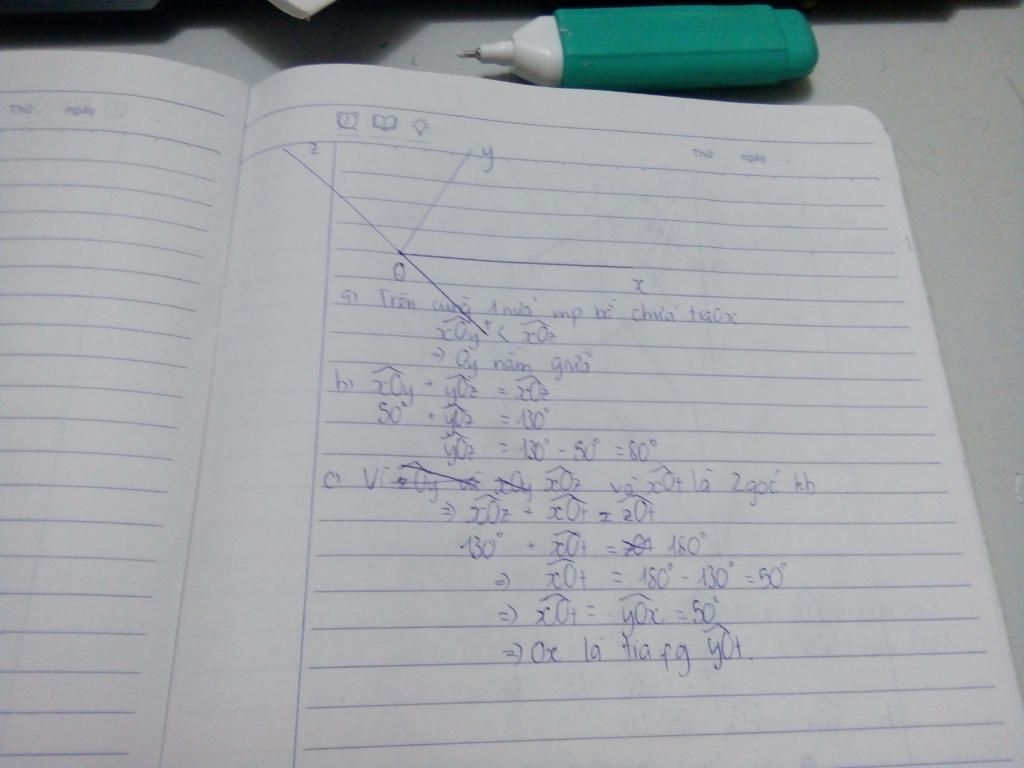 Thứ ngày
Thứ ngày
z y
O x
a) Trên cùng 1 nửa mp bờ chứa tia Ox
xOy < xOz
⇒ Oy nằm giữa
b) xOy + yOz = xOz
50° + yOz = 130°
yOz = 130° - 50° = 80°
c) Vì xOz và xOt là 2 góc kb
⇒ xOz + xOt = zOt
130° + xOt = 180°
⇒ xOt = 180° - 130° = 50°
⇒ xOt = yOx = 50°
⇒ Ox là tia fg yOt.